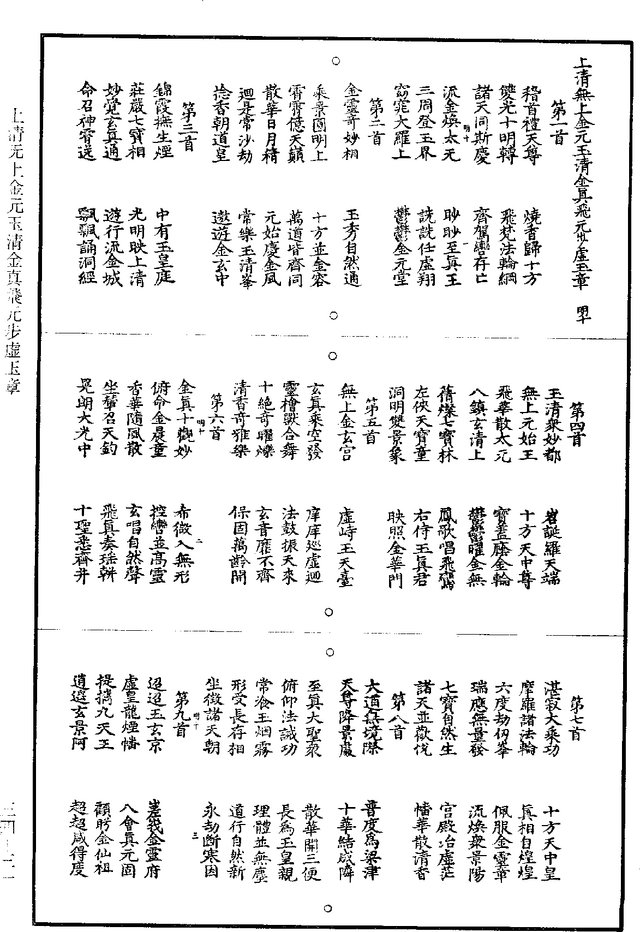 上清無上金元玉清金真飛元步虛玉章 明十
第一首
稽首禮天尊 燒香歸十方
雙光十明轉 飛梵法輪綱
諸天同斯慶 齊駕響存亡
流金煥太元 眇眇至真王
三周登玉界 詵詵任虛翔
窈窕大羅上 鬱鬱金元堂
第二首
金靈奇妙相 玉秀自然通
乘景圓明上 十方並金容
霄霄億天巔 萬道皆齊同
散華日月精 元始慶金風
迴是常沙劫 常樂玉清峯
捻香朝道皇 遨遊金玄中
第三首
錦霞撫生煙 中有玉皇庭
莊嚴七寶相 光明映上清
妙覺玄真通 遊行流金城
命召神霄送 飄飄誦洞經
第四首
玉清衆妙都 岧誕羅天端
無上元始王 十方天中尊
飛華散太元 寶蓋蔭金輪
八鎮玄清上 鬱鬱曜金無
蒨燦七寶林 鳳歌唱飛鸞
左俠天寶童 右侍玉真君
洞明雙景象 映照金華門
第五首
無上金玄宮 虛峙玉天臺
玄真乘空發 摩厙巡虛迴
靈檜獸合舞 法鼓振天來
十絶奇曜爍 玄音靡不齊
清香奇雅樂 保固萬齡開
第六首
金真十觀妙 希微入無形
俯命金晨童 控轡並高靈
香華隨風散 玄唱自然聲
坐輦召天鈞 飛真奏瑤軿
晃朗大光中 十聖悉齊并
第七首
湛寂大乘功 十方天中皇
摩羅諸法輪 真相自煌煌
六度劫仞峯 佩服金靈章
瑞應無量發 流煥衆景陽
七寶自然生 宮殿治虛茫
諸天並歡悅 幡華散清香
第八首
大道無境際 普度為梁津
天尊降景巖 十華結成隣
至真大聖衆 散華開三便
俯仰法誠功 長為玉皇親
常飡玉烟霧 理體並無塵
形受長存相 道行自然新
坐微諸天朝 永劫斷寒因
第九首
迢迢玉玄京 差峩金靈府
虛皇龍煙幡 八會真元固
提携九天王 顧眄金仙祖
逍遥玄景阿 超超咸得度
上清无上金元玉清金真飛元步虛玉章